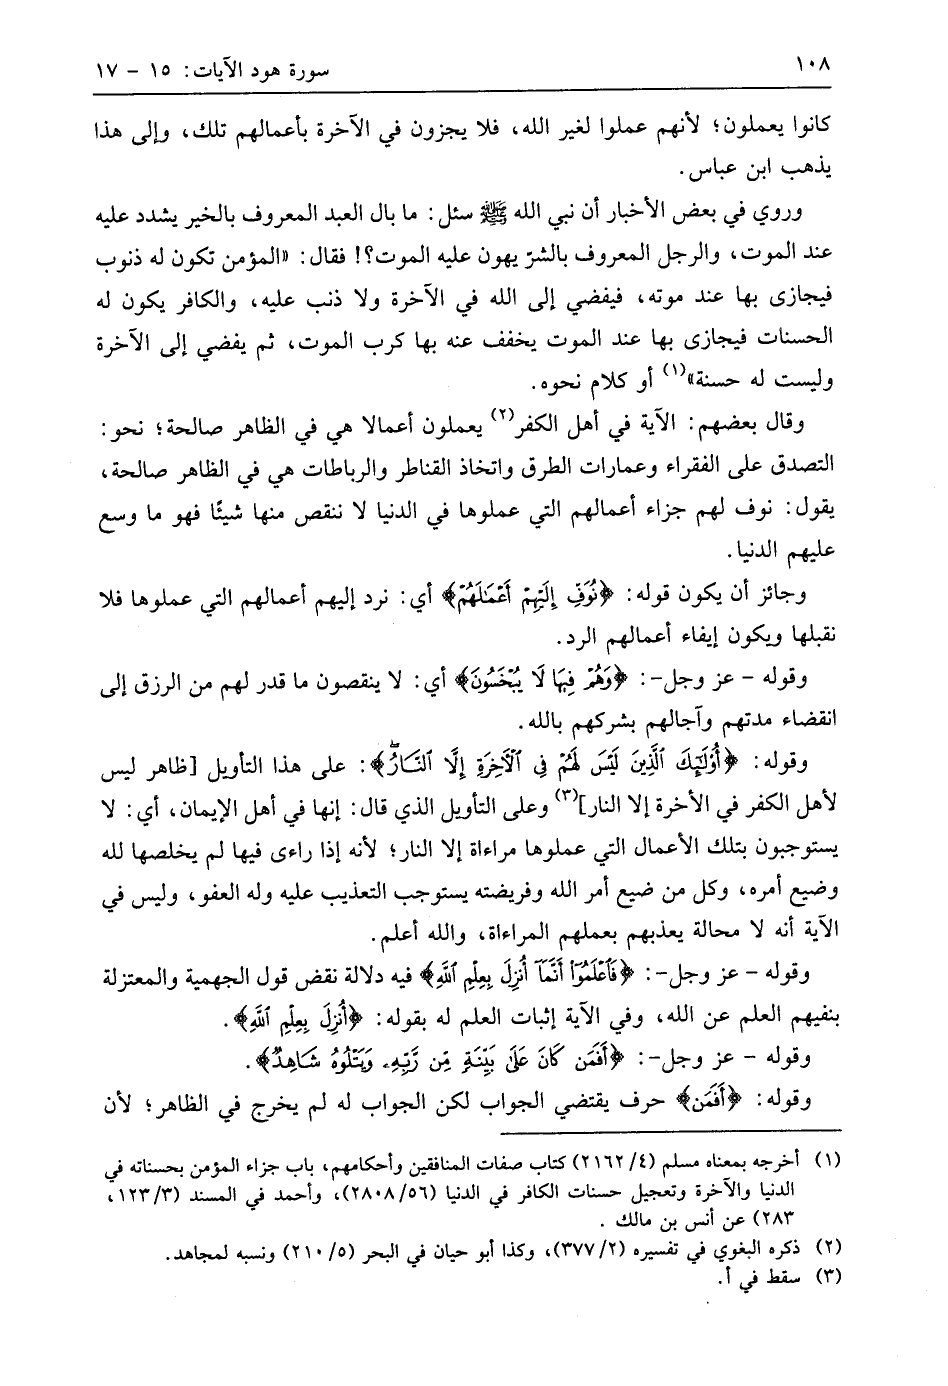 ١٠٨
سورة هود الآيات: ١٥ - ١٧
كانوا يعملون؛ لأنهم عملوا لغير الله، فلا يجزون في الآخرة بأعمالهم تلك، وإلى هذا
يذهب ابن عباس.
وروي في بعض الأخبار أن نبي الله ﷺ سئل: ما بال العبد المعروف بالخير يشدد عليه
عند الموت، والرجل المعروف بالشرّ يهون عليه الموت؟! فقال: «المؤمن تكون له ذنوب
فيجازى بها عند موته، فيفضي إلى الله في الآخرة ولا ذنب عليه، والكافر يكون له
الحسنات فيجازى بها عند الموت يخفف عنه بها كرب الموت، ثم يفضي إلى الآخرة
وليست له حسنة»(١) أو كلام نحوه.
وقال بعضهم: الآية في أهل الكفر(٢) يعملون أعمالا هي في الظاهر صالحة؛ نحو:
التصدق على الفقراء وعمارات الطرق واتخاذ القناطر والرباطات هي في الظاهر صالحة،
يقول: نوف لهم جزاء أعمالهم التي عملوها في الدنيا لا ننقص منها شيئًا فهو ما وسع
عليهم الدنيا.
وجائز أن يكون قوله: ﴿نُوَفِّ إِلَيۡهِمۡ أَعۡمَٰلَهُمۡ﴾ أي: نرد إليهم أعمالهم التي عملوها فلا
نقبلها ويكون إيفاء أعمالهم الرد.
وقوله - عز وجل-: ﴿وَهُمۡ فِيهَا لَا يُبۡخَسُونَ﴾ أي: لا ينقصون ما قدر لهم من الرزق إلى
انقضاء مدتهم وآجالهم بشركهم بالله.
وقوله: ﴿أُوْلَٰٓئِكَ ٱلَّذِينَ لَيۡسَ لَهُمۡ فِي ٱلۡأٓخِرَةِ إِلَّا ٱلنَّارُۖ﴾: على هذا التأويل [ظاهر ليس
لأهل الكفر في الأخرة إلا النار](٣) وعلى التأويل الذي قال: إنها في أهل الإيمان، أي: لا
يستوجبون بتلك الأعمال التي عملوها مراءاة إلا النار؛ لأنه إذا راءى فيها لم يخلصها لله
وضيع أمره، وكل من ضيع أمر الله وفريضته يستوجب التعذيب عليه وله العفو، وليس في
الآية أنه لا محالة يعذبهم بعملهم المراءاة، والله أعلم.
وقوله - عز وجل-: ﴿فَٱعۡلَمُوٓاْ أَنَّمَآ أُنزِلَ بِعِلۡمِ ٱللَّهِ﴾ فيه دلالة نقض قول الجهمية والمعتزلة
بنفيهم العلم عن الله، وفي الآية إثبات العلم له بقوله: ﴿أُنزِلَ بِعِلۡمِ ٱللَّهِ﴾.
وقوله - عز وجل-: ﴿أَفَمَن كَانَ عَلَىٰ بَيِّنَةٖ مِّن رَّبِّهِۦ وَيَتۡلُوهُ شَاهِدٞ﴾.
وقوله: ﴿أَفَمَن﴾ حرف يقتضي الجواب لكن الجواب له لم يخرج في الظاهر؛ لأن
(١) أخرجه بمعناه مسلم (٢١٦٢/٤) كتاب صفات المنافقين وأحكامهم، باب جزاء المؤمن بحسناته في
الدنيا والآخرة وتعجيل حسنات الكافر في الدنيا (٢٨٠٨/٥٦)، وأحمد في المسند (١٢٣/٣،
٢٨٣) عن أنس بن مالك .
(٢) ذكره البغوي في تفسيره (٣٧٧/٢)، وكذا أبو حيان في البحر (٢١٠/٥) ونسبه لمجاهد.
(٣) سقط في أ.